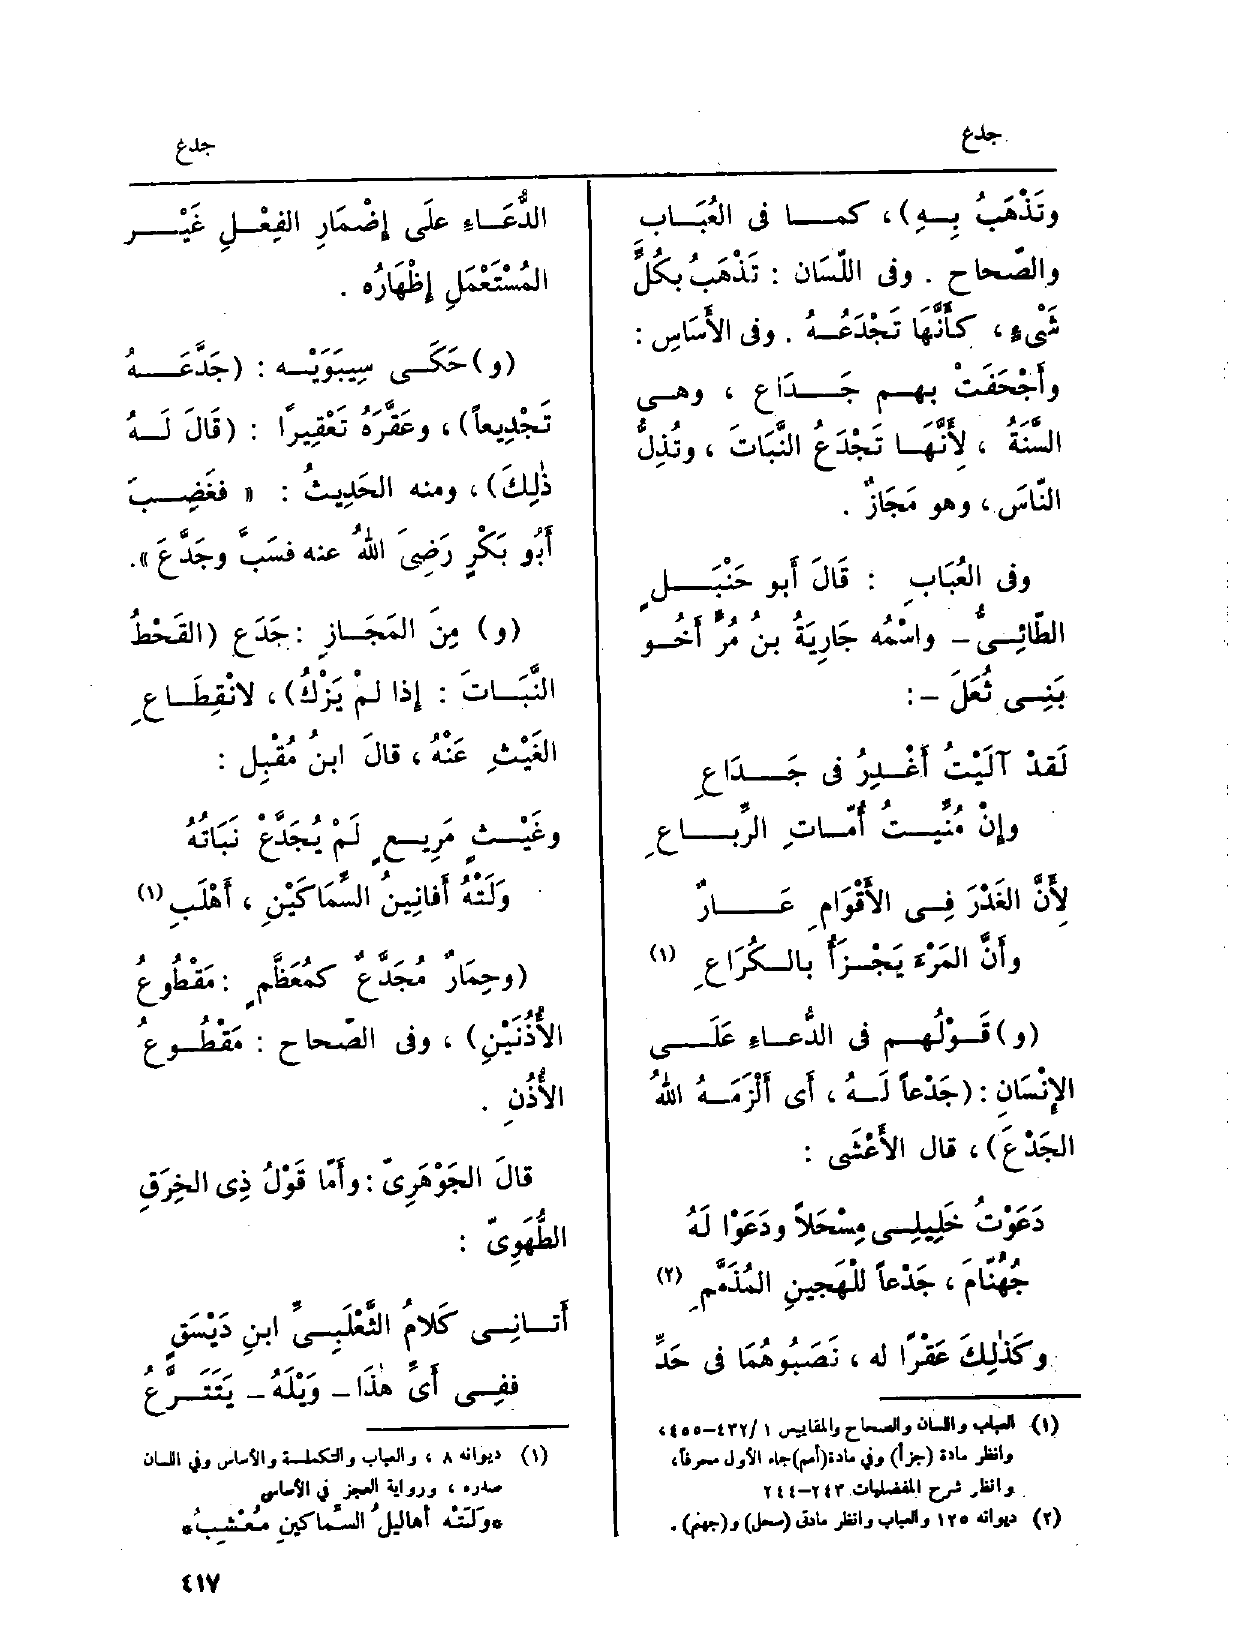 جدع
جدع
وتَذْهَبُ بِـهِ)، كمـــا فى العُبَــاب
والصّحاح . وفى اللّسَان : تَذْهَبُ بكُلِّ
شَىْءٍ، كأَنَّهَا تَجْدَعُــهُ . وفى الأَسَاسِ :
وأَجْحَفَتْ بهـم جَــدَاعِ ، وهــى
السَّنَةُ ، لأَنَّهــا تَجْدَعُ النَّبَاتَ ، وتُذِلُّ
النّاسَ، وهو مَجَازٌ .
وفى العُبَابِ : قَالَ أَبو حَنْبَــلٍ
الطّائِــىُّ - واسْمُه جَارِيَةُ بنُ مُرٍّ أَخُـو
بَنِــى ثُعَلَ - :
لَقَدْ آلَيْتُ أَغْــدِرُ فى جَــدَاعِ
وإِنْ مُنِّيــتُ أُمّــاتِ الرِّبَــاعِ
لِأَنَّ الغَدْرَ فِــى الأَقْوَامِ عَــارٌ
وأَنَّ المَرْءَ يَجْـزَأُ بالــكُرَاعِ (١)
(و) قَـوْلُهـم فى الدُّعـاءِ عَلَــى
الإِنْسَانِ : (جَدْعاً لَــهُ ، أَى أَلْزَمَــهُ اللهُ
الجَدْعَ) ، قال الأَعْشَى :
دَعَوْتُ خَلِيلِــى مِسْحَلاً ودَعَوْا لَهُ
جُهُنّامَ ، جَدْعاً للْهَجِينِ المُذَمَّمِ (٢)
وكَذٰلِكَ عَقْرًا له ، نَصَبُوهُمَا فى حَدِّ
(١) العباب واللسان والصحاح والمقاييس ١ /٤٣٢-٤٥٥،
وانظر مادة (جزأ) وفي مادة(أمم)جاء الأول محرفاً،
وانظر شرح المفضليات ٢٤٣-٢٤٤
(٢) ديوانه ١٢٥ والعباب وانظر مادتى (سحل) و(جهنم) .
الدُّعَــاءِ علَى إِضْمَارِ الفِعْـلِ غَيْــرِ
المُسْتَعْمَلِ إِظْهَارُه .
(و)حَكَــى سِيبَوَيْــه : (جَدَّعَــهُ
تَجْدِيعاً) ، وعَقَّرَهُ تَعْقِيرًا : (قَالَ لَــهُ
ذٰلِكَ) ، ومنه الحَدِيثُ : « فغَضِــبَ
أَبُو بَكْرٍ رَضِىَ اللهُ عنه فسَبَّ وجَدَّعَ ».
(و) مِنَ المَجَـازِ : جَدَعَ (القَحْطُ
النَّبَــاتَ : إِذا لمْ يَزْكُ) ، لانْقِطَــاعِ
الغَيْثِ عَنْهُ ، قالَ ابنُ مُقْبِل :
وغَيْــثٍ مَرِيــعٍ لَمْ يُجَدَّعْ نَبَاتُهُ
وَلَتْهُ أَفانِينُ السِّمَاكَيْنِ ، أَهْلَبِ (١)
(وحِمَارٌ مُجَدَّعٌ كمُعَظَّمٍ : مَقْطُوعُ
الأُذُنَيْنِ) ، وفى الصّحاح : مَقْطُـوعُ
الأُذُنِ .
قالَ الجَوْهَرِىّ : وأَمّا قَوْلُ ذِى الخِرَقِ
الطُّهَوِىّ :
أَتــانِــى كَلامُ الثَّعْلَبِــىِّ ابنِ دَيْسَقٍ
ففِــى أَىِّ هٰذَا - وَيْلَهُ - يَتَتَــرَّعُ
(١) ديوانه ٨ ، والعباب والتكملــة والأساس وفي اللسان
صدره ، ورواية العجز في الأساس
*ولَتْه أهاليلُ السّماكينِ مُعْشِبُ*
٤١٧